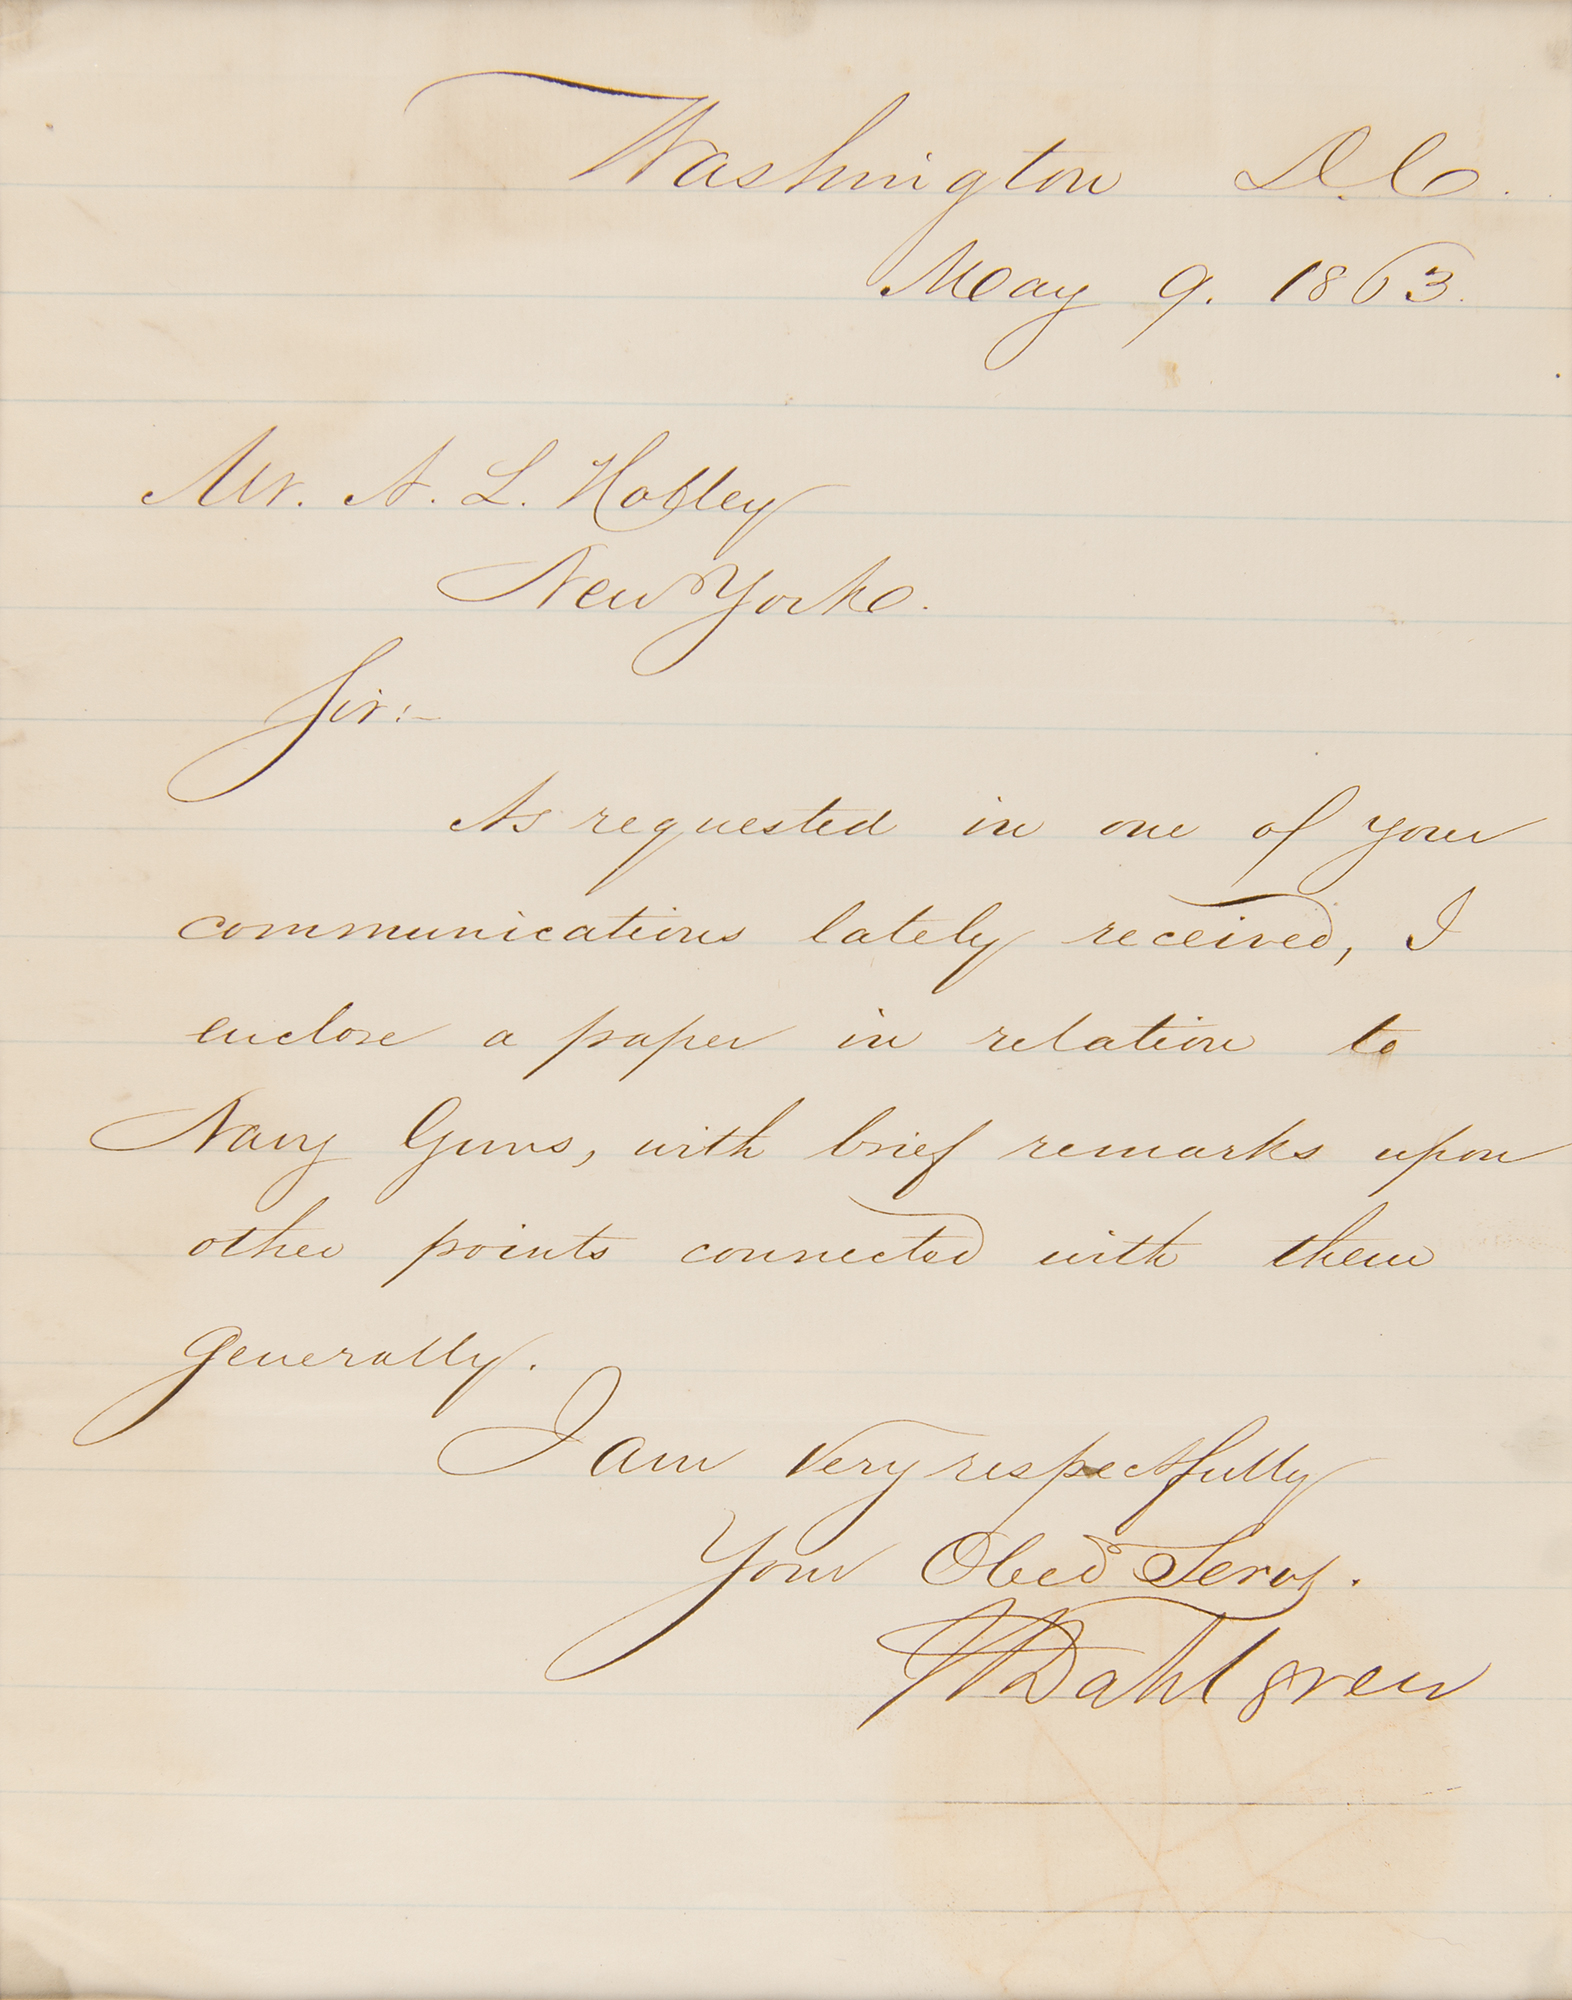 Washington D.C.
May 9. 1863.
Mr. A. L. Holley
New York.
Sir:-
As requested in one of your
communications lately received, I
enclose a paper in relation to
Navy Guns, with brief remarks upon
other points connected with them
generally.
I am very respectfully
Your Obed Servt.
JADahlgren